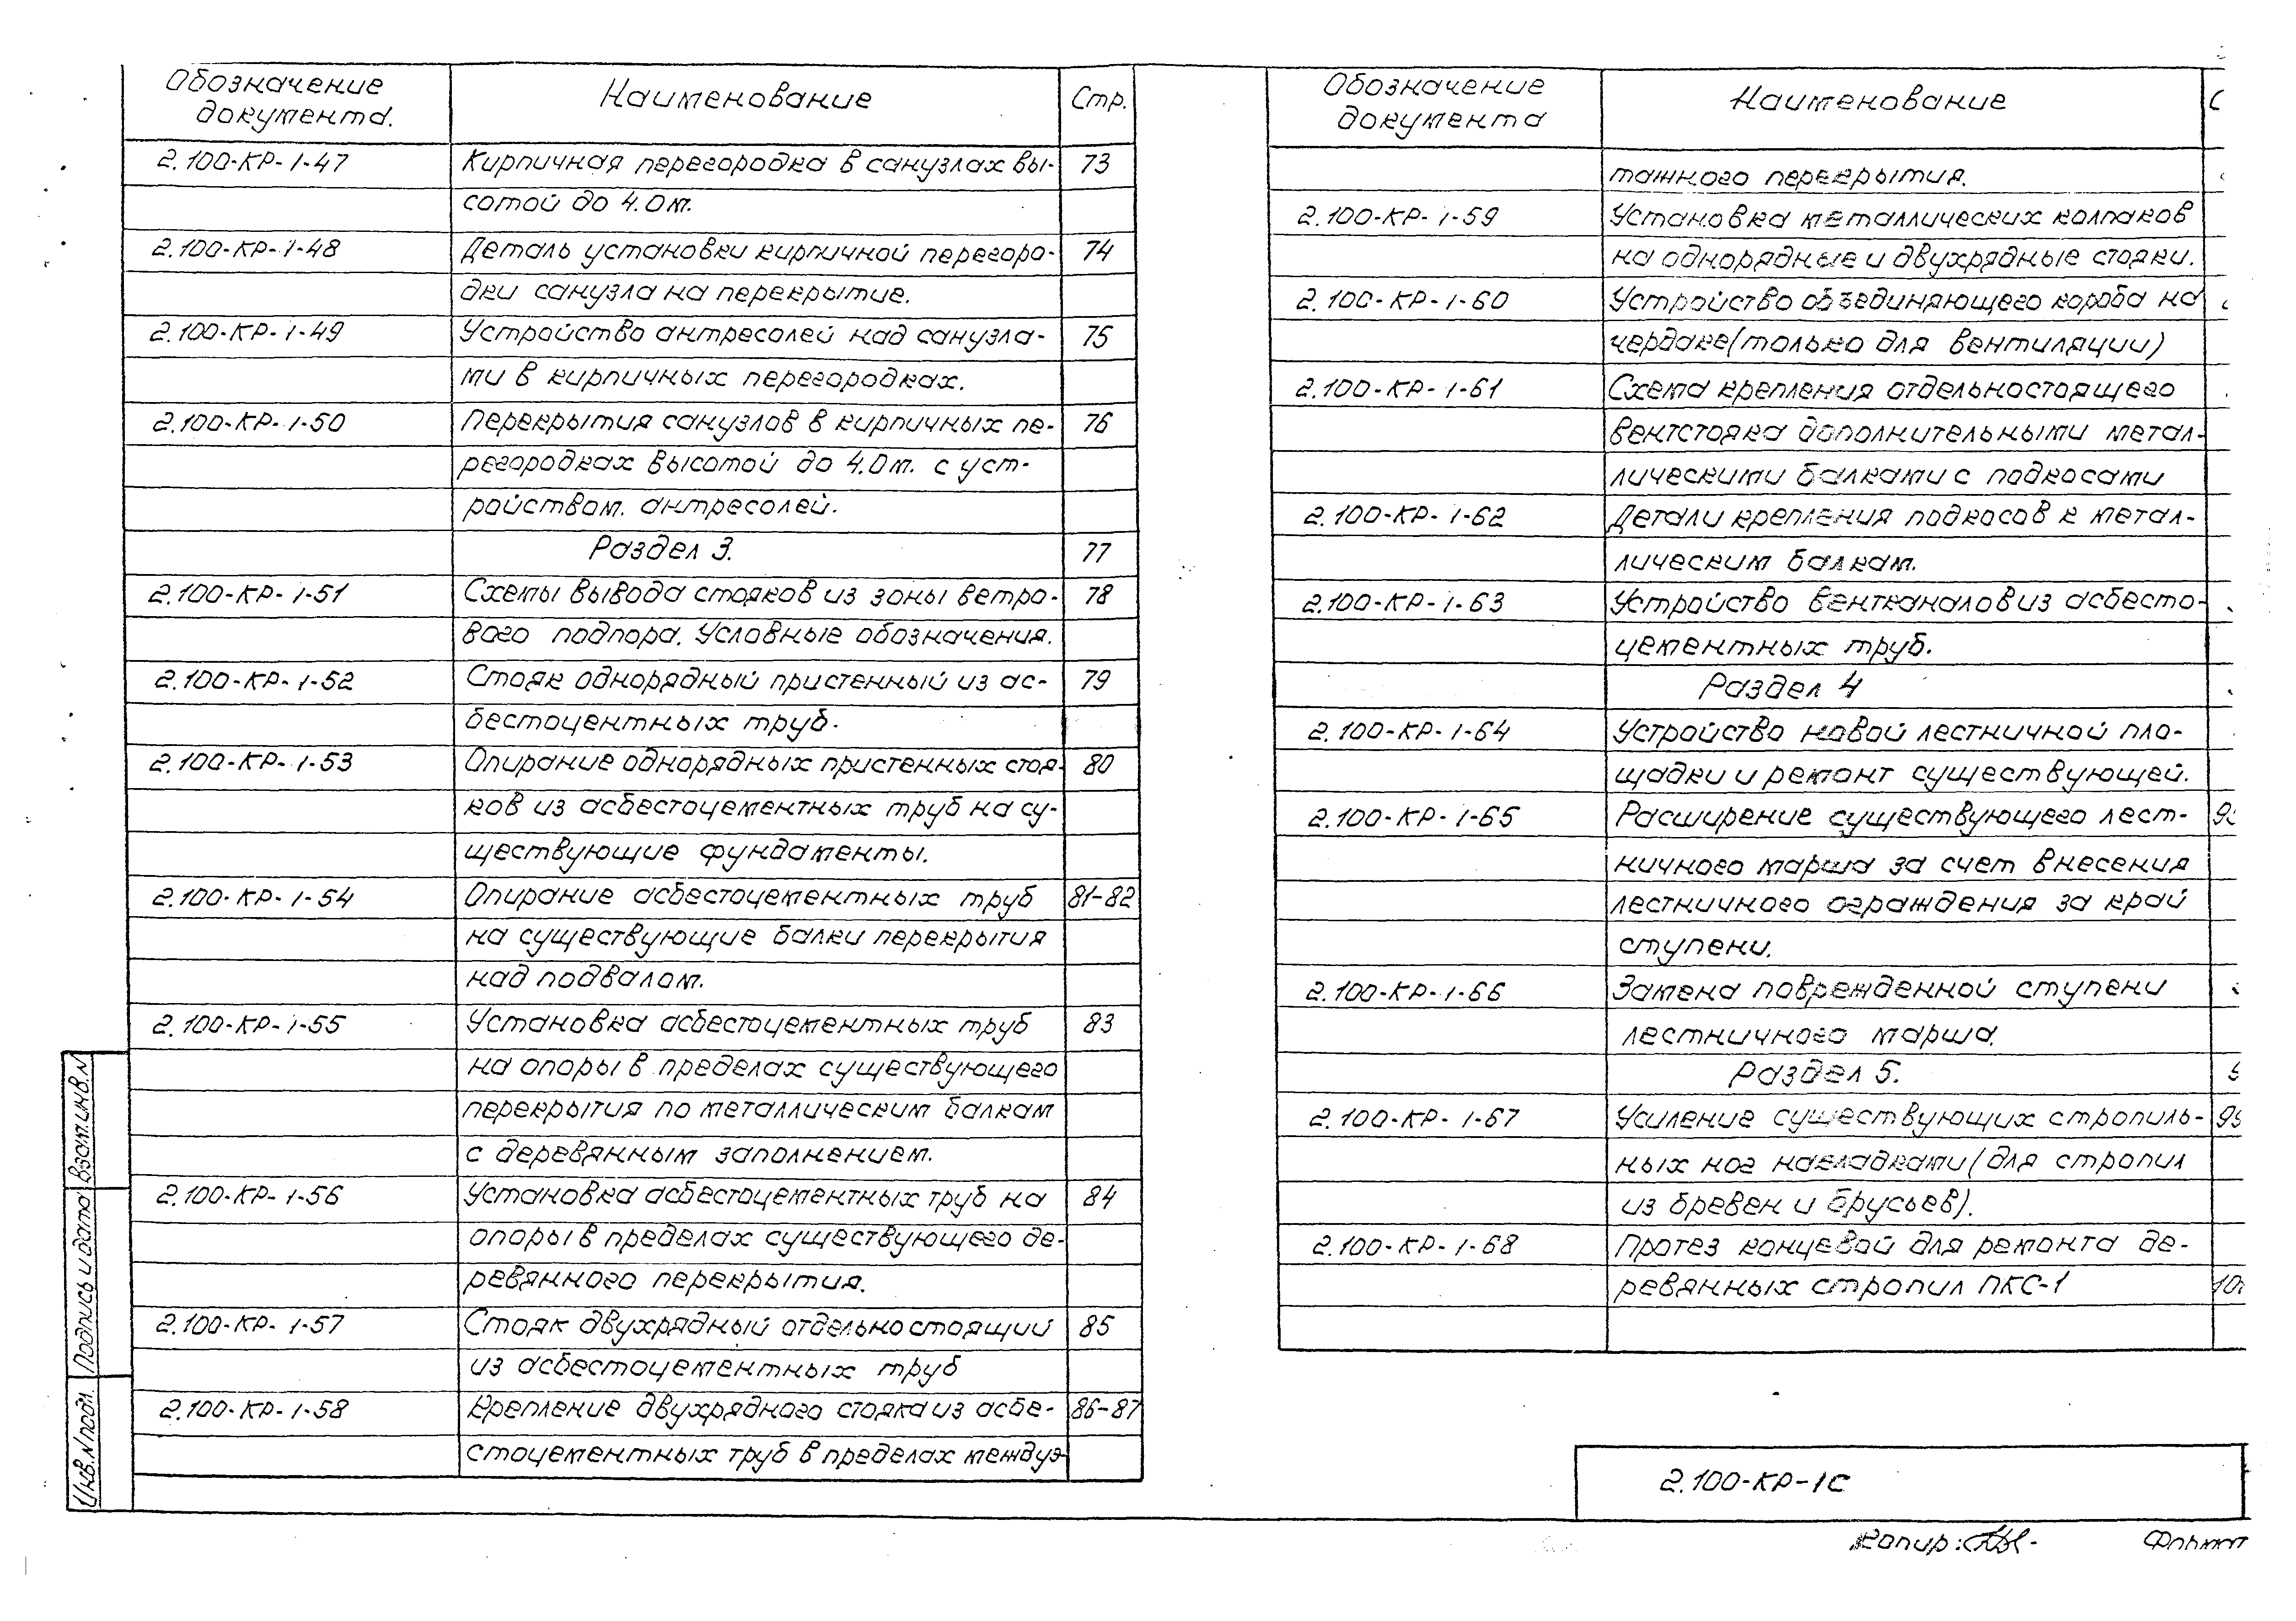 Обозначение документа. Наименование Стр.
2.100-КР-1-47 Кирпичная перегородка в санузлах вы- 73
сотой до 4.0м.
2.100-КР-1-48 Деталь установки кирпичной перегоро- 74
дки санузла на перекрытие.
2.100-КР-1-49 Устройство антресолей над санузла- 75
ми в кирпичных перегородках.
2.100-КР-1-50 Перекрытия санузлов в кирпичных пе- 76
регородках высотой до 4.0м. с уст-
ройством. антресолей.
Раздел 3. 77
2.100-КР-1-51 Схемы вывода стояков из зоны ветро- 78
вого подпора. Условные обозначения.
2.100-КР-1-52 Стояк однорядный пристенный из ас- 79
бестоцентных труб.
2.100-КР-1-53 Опирание однорядных пристенных стоя- 80
ков из асбестоцементных труб на су-
ществующие фундаменты.
2.100-КР-1-54 Опирание асбестоцементных труб 81-82
на существующие балки перекрытия
над подвалом.
2.100-КР-1-55 Установка асбестоцементных труб 83
на опоры в пределах существующего
перекрытия по металлическим балкам
с деревянным заполнением.
2.100-КР-1-56 Установка асбестоцементных труб на 84
опоры в пределах существующего де-
ревянного перекрытия.
2.100-КР-1-57 Стояк двухрядный отдельностоящий 85
из асбестоцементных труб
2.100-КР-1-58 Крепление двухрядного стояка из асбе- 86-87
стоцементных труб в пределах междуэ-
Обозначение документа Наименование
тажного перекрытия.
2.100-КР-1-59 Установка металлических колпаков
на однорядные и двухрядные стояки.
2.100-КР-1-60 Устройство объединяющего короба на
чердаке (только для вентиляции)
2.100-КР-1-61 Схема крепления отдельностоящего
вентстояка дополнительными метал-
лическими балками с подкосами
2.100-КР-1-62 Детали крепления подкосов к метал-
лическим балкам.
2.100-КР-1-63 Устройство вентканалов из асбесто-
цементных труб.
Раздел 4
2.100-КР-1-64 Устройство новой лестничной пло-
щадки и ремонт существующей.
2.100-КР-1-65 Расширение существующего лест-
ничного марша за счет внесения
лестничного ограждения за край
ступени.
2.100-КР-1-66 Замена поврежденной ступени
лестничного марша.
Раздел 5.
2.100-КР-1-67 Усиление существующих стропиль-
ных ног накладками (для стропил
из бревен и брусьев).
2.100-КР-1-68 Протез концевой для ремонта де-
ревянных стропил ПКС-1
2.100-КР-1С
Копир:
Формат
Взам.инв.N
Подпись и дата
Инв.N подл.